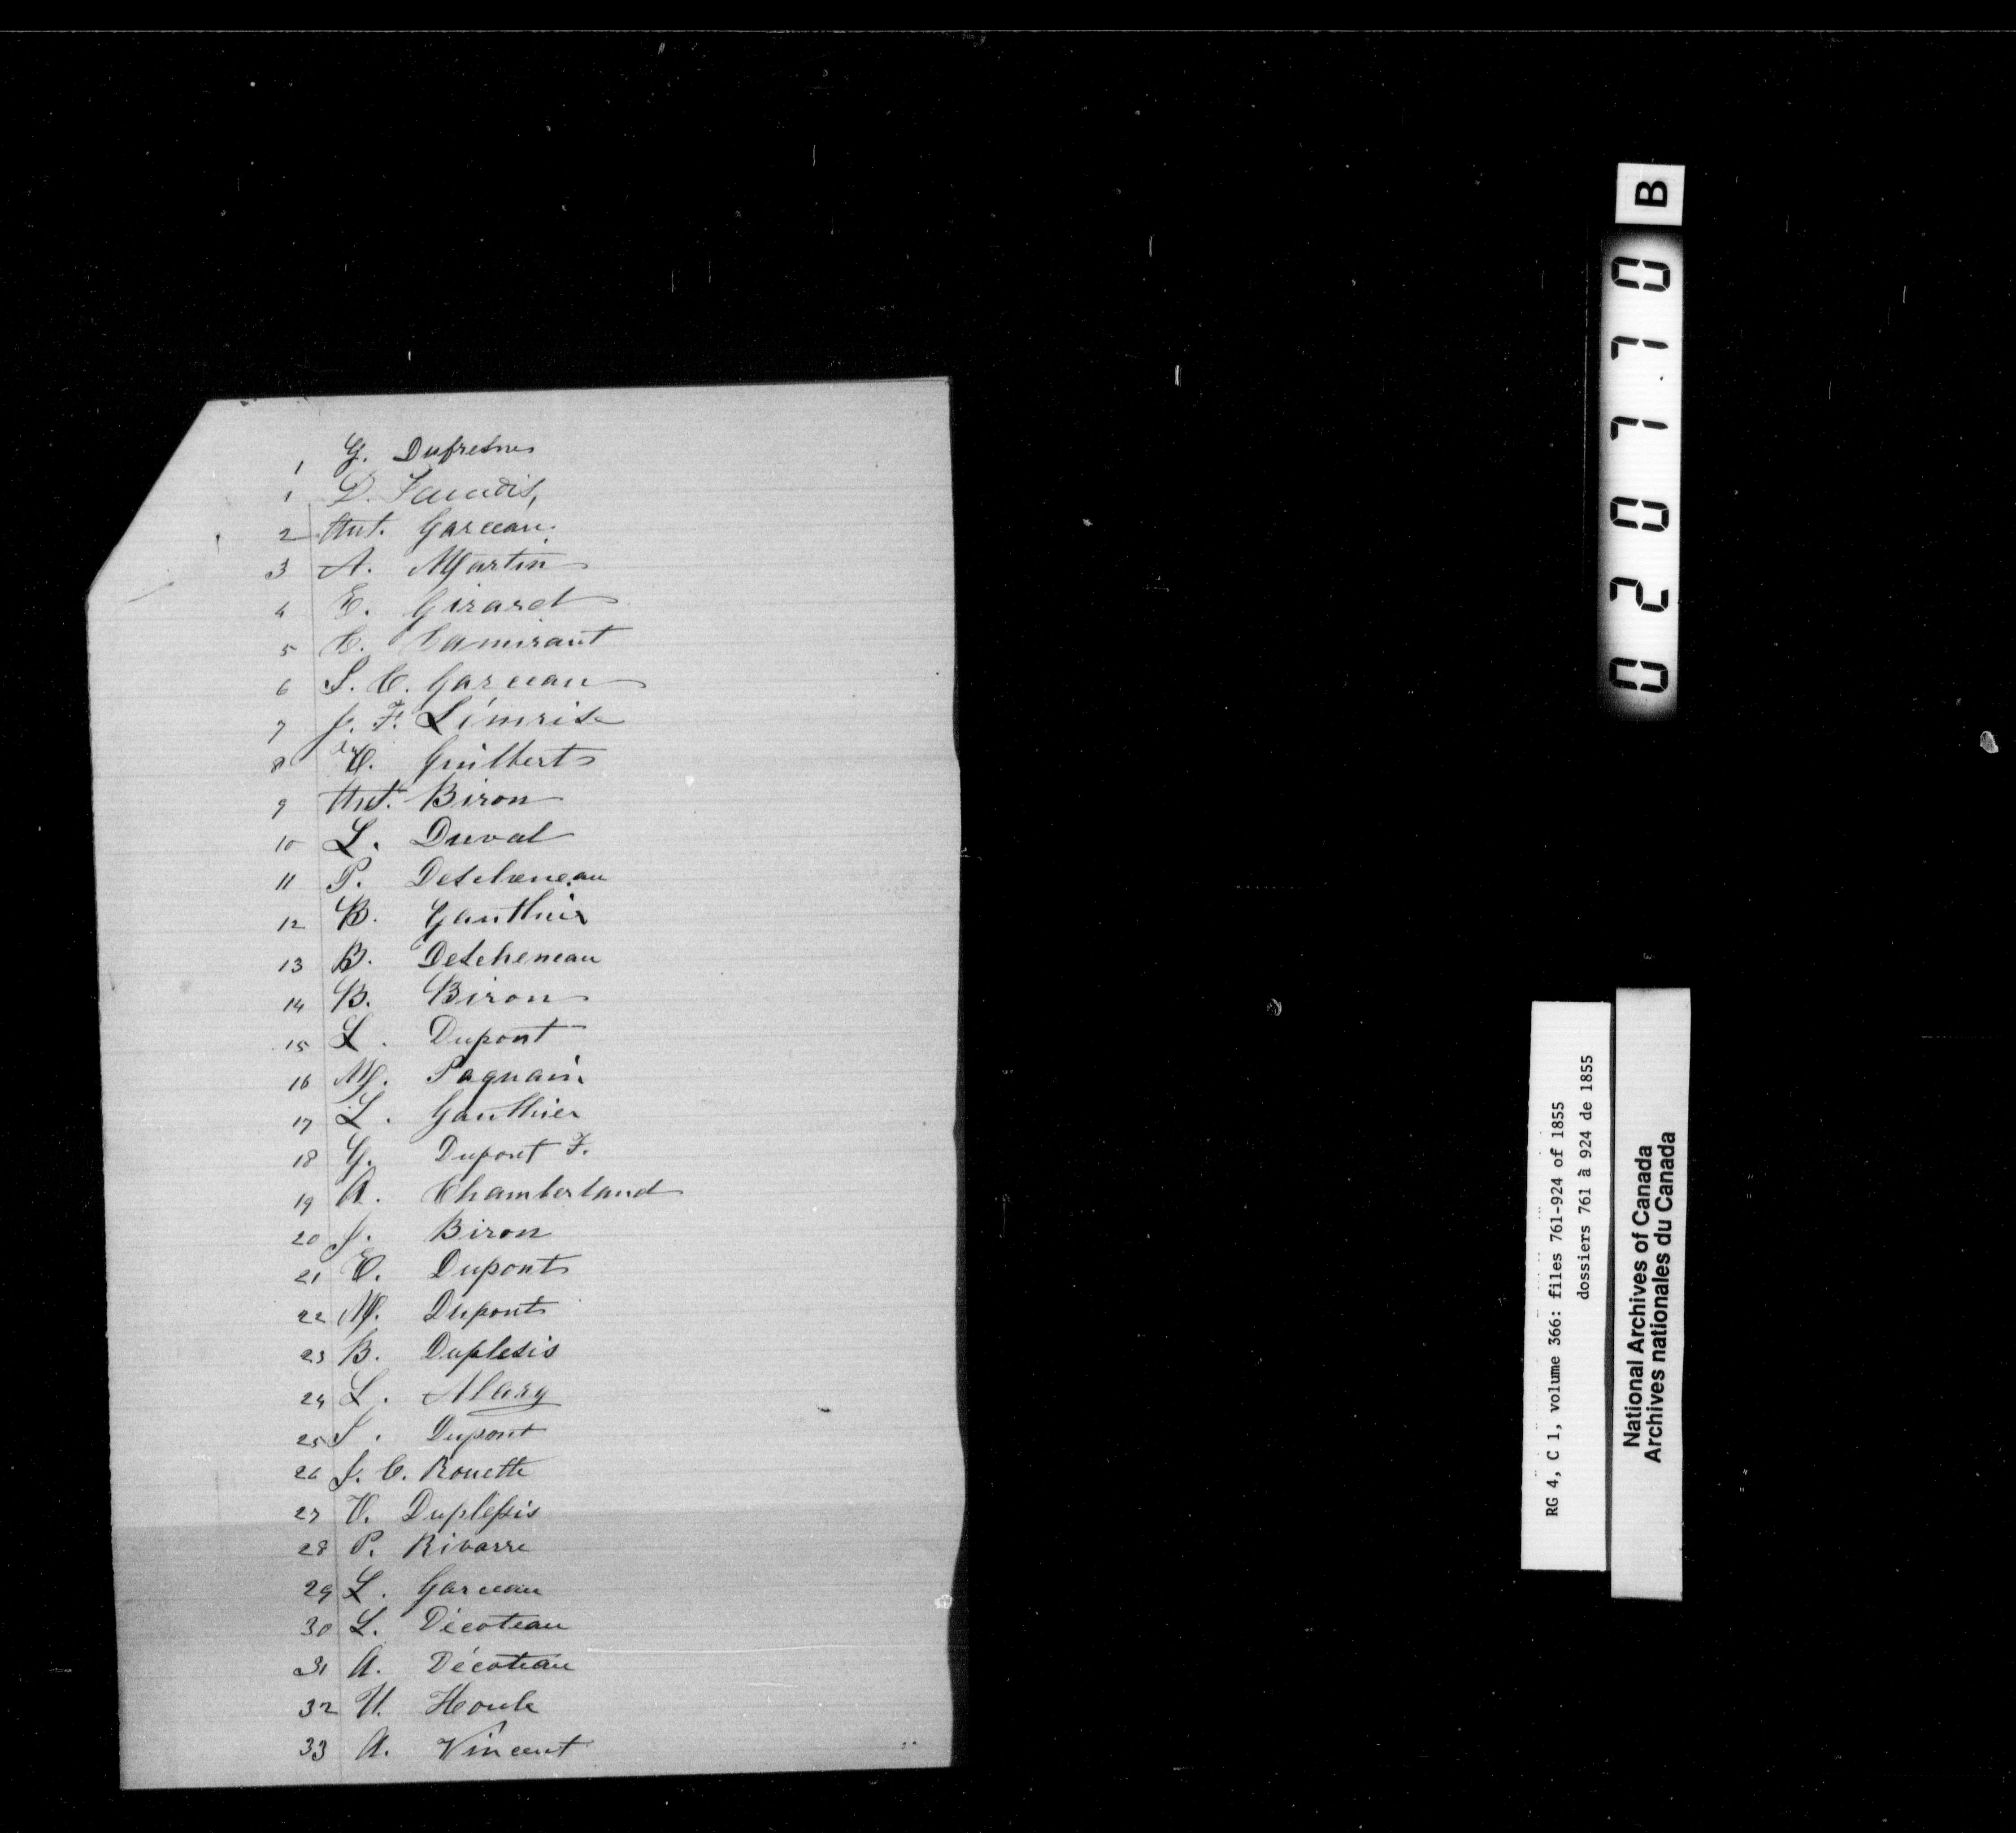 1 G. Dufresne
1 D.
2 Ant. Garceau.
3 A. Martin
4 E. Girard
5 C. Camirant
6 S. C. Garceau
7 J. F. Limrise
8 C. Guilbert
9 Ant. Biron
10 L. Duval
11 P. Descheneau
12 B. Gauthier
13 B. Descheneau
14 B. Biron
15 L. Dupont
16 M. Paquain
17 L. Gauthier
18 G. Dupont F.
19 A. Chamberland
20 J. Biron
21 E. Dupont
22 M. Dupont
23 B. Duplesis
24 L. Alary
25 S. Dupont
26 J. C. Rouette
27 V. Duplessis
28 P. Rivarre
29 L. Garceau
30 L. Décoteau
31 A. Décoteau
32 U. Houle
33 A. Vincent
020770 B
RG 4, C 1, volume 366: files 761-924 of 1855
dossiers 761 à 924 de 1855
National Archives of Canada
Archives nationales du Canada